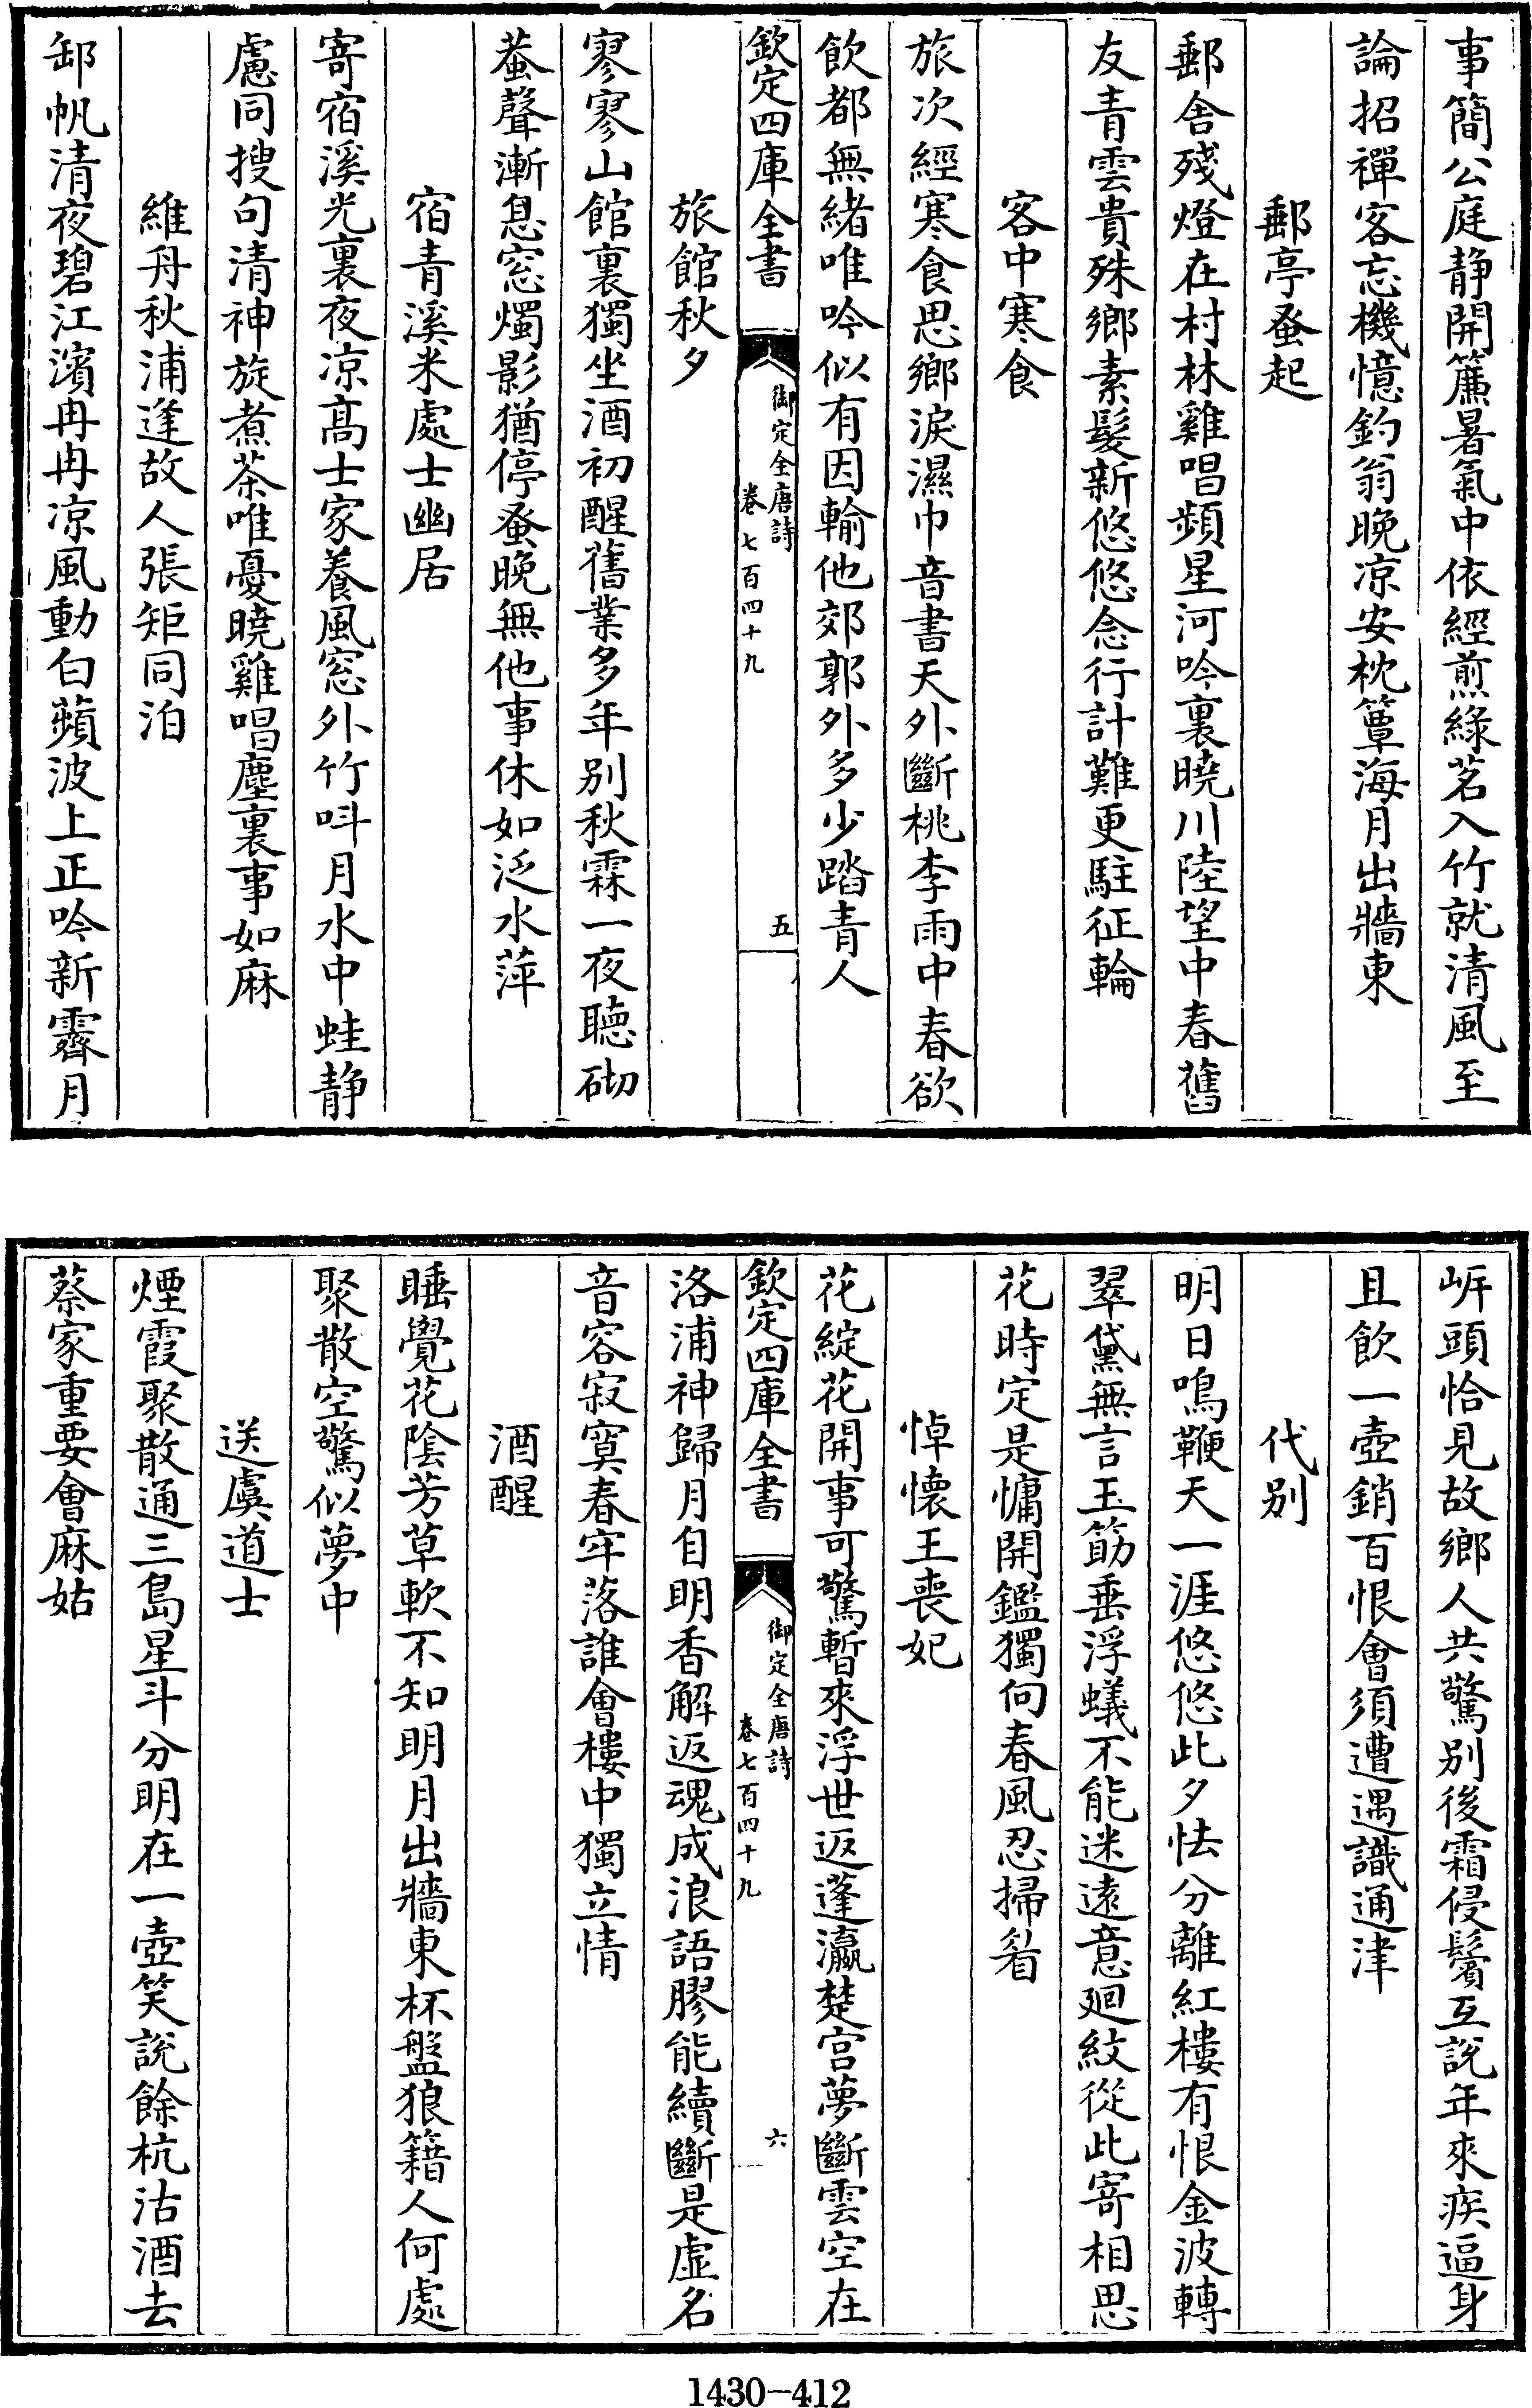 事簡公庭静開簾暑氣中依經煎綠茗入竹就清風至
論招禪客忘機憶釣翁晚凉安枕簟海月出牆東
郵亭蚤起
郵舍殘燈在村林雞唱頻星河吟裏曉川陸望中春舊
友青雲貴殊鄉素髮新悠悠念行計難更駐征輪
客中寒食
旅次經寒食思鄉淚濕巾音書天外斷桃李雨中春欲
飲都無緒唯吟似有因輸他郊郭外多少踏青人
欽定四庫全書
御定全唐詩
卷七百四十九
五
旅館秋夕
寥寥山館裏獨坐酒初醒舊業多年别秋霖一夜聽砌
蛬聲漸息窓燭影猶停蚤晚無他事休如泛水萍
宿青溪米處士幽居
寄宿溪光裏夜凉高士家養風窓外竹呌月水中蛙静
慮同搜句清神旋煮茶唯憂曉雞唱塵裏事如麻
維舟秋浦逢故人張矩同泊
卸帆清夜碧江濱冉冉凉風動白蘋波上正吟新霽月
岍頭恰見故鄉人共驚别後霜侵鬢互說年來疾逼身
且飲一壺銷百恨會須遭遇識通津
代别
明日鳴鞭天一涯悠悠此夕怯分離紅樓有恨金波轉
翠黛無言玉筯垂浮蟻不能迷遠意廻紋從此寄相思
花時定是慵開鑑獨向春風忍掃眉
悼懐王喪妃
花綻花開事可驚暫來浮世返蓬瀛楚宫夢斷雲空在
欽定四庫全書
御定全唐詩
卷七百四十九
六
洛浦神歸月自明香解返魂成浪語膠能續斷是虛名
音容寂寞春牢落誰會樓中獨立情
酒醒
睡覺花陰芳草軟不知明月出牆東杯盤狼籍人何處
聚散空驚似夢中
送虞道士
煙霞聚散通三島星斗分明在一壺笑說餘杭沽酒去
蔡家重要會麻姑
1430-412